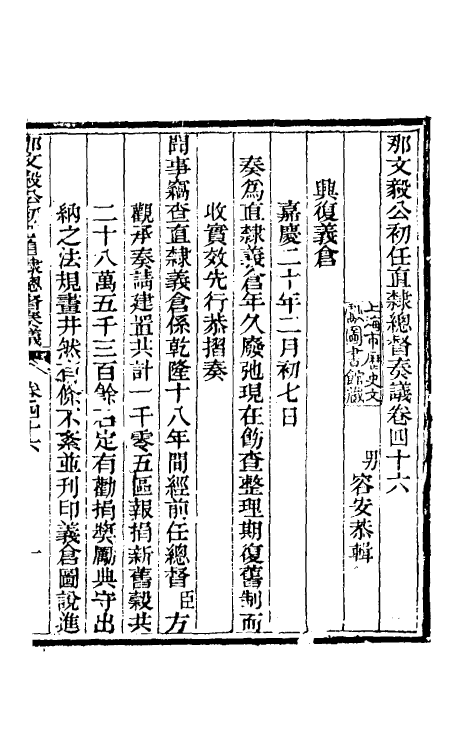 那文毅公初任直隸總督奏議卷四十六
上海市歷史文
獻圖書館藏
男容安恭輯
興復義倉
嘉慶二十年二月初七日
奏為直隸義倉年久廢弛現在飭查整理期復舊制而
收實效先行恭摺奏
聞事竊查直隸義倉係乾隆十八年間經前任總督臣方
觀承奏請建置共計一千零五區報捐新舊穀共
二十八萬五千三百餘石定有勸捐獎勵典守出
納之法規畫井然有條不紊並刊印義倉圖說進
那文毅公初任直隸總督奏議
卷四十六
一